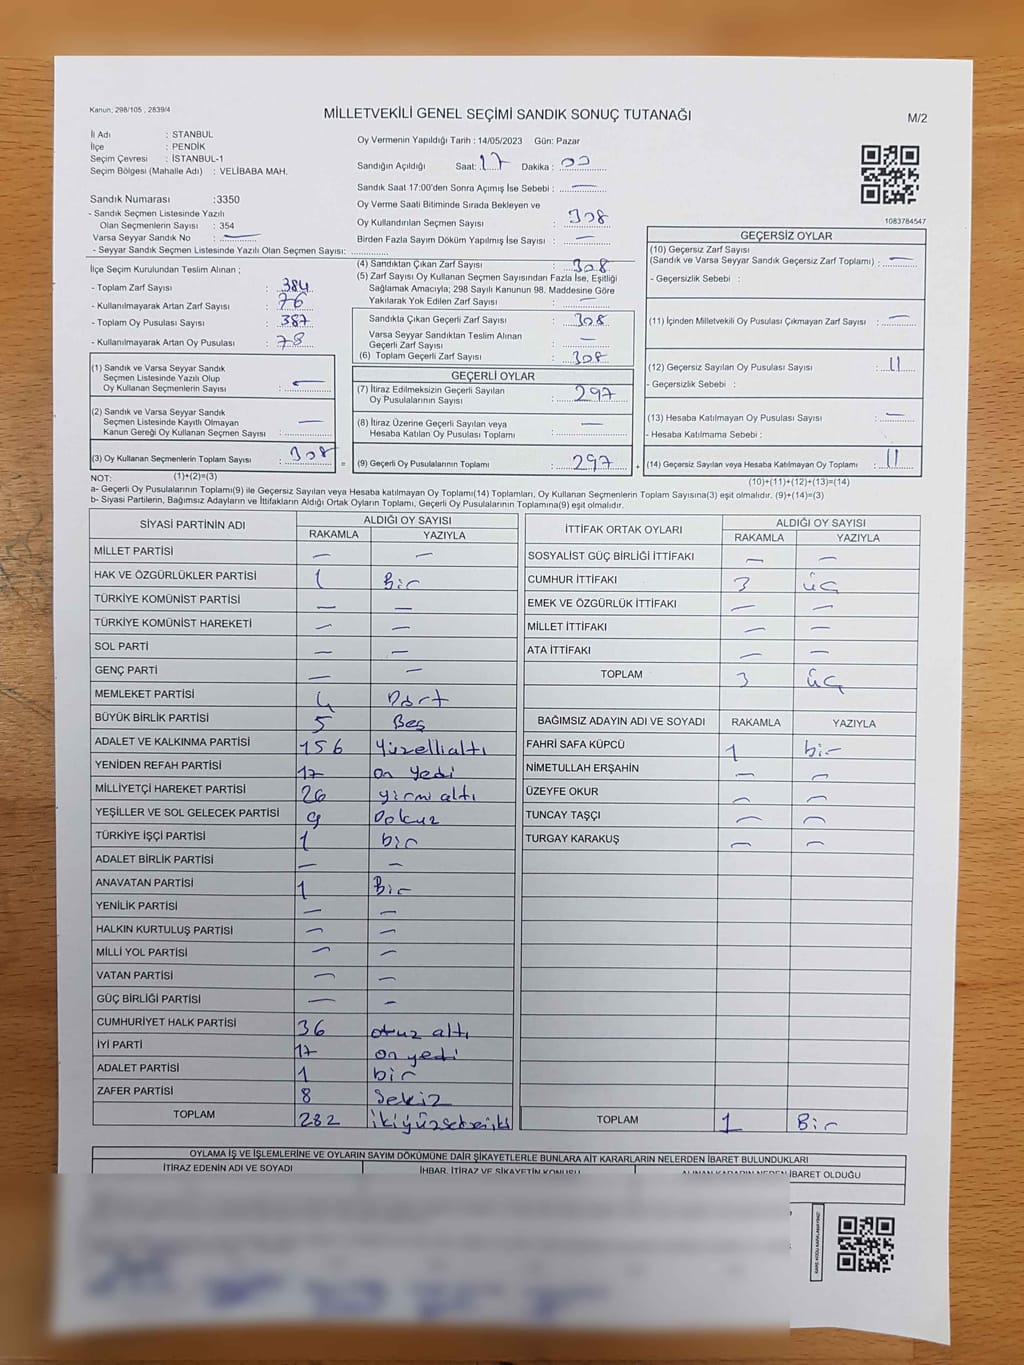 Kanun, 298/105 , 2839/4
MİLLETVEKİLİ GENEL SEÇİMİ SANDIK SONUÇ TUTANAĞI
M/2
İl Adı : STANBUL
İlçe : PENDİK
Seçim Çevresi : İSTANBUL-1
Seçim Bölgesi (Mahalle Adı) : VELİBABA MAH.
Oy Vermenin Yapıldığı Tarih : 14/05/2023 Gün: Pazar
Sandığın Açıldığı Saat: 17 Dakika : 00
Sandık Saat 17:00'den Sonra Açımış İse Sebebi : —
Oy Verme Saati Bitiminde Sırada Bekleyen ve
Oy Kullandırılan Seçmen Sayısı : 308
Birden Fazla Sayım Döküm Yapılmış İse Sayısı : —
1083784547
Sandık Numarası :3350
- Sandık Seçmen Listesinde Yazılı
Olan Seçmenlerin Sayısı : 354
Varsa Seyyar Sandık No : —
- Seyyar Sandık Seçmen Listesinde Yazılı Olan Seçmen Sayısı:
İlçe Seçim Kurulundan Teslim Alınan ;
- Toplam Zarf Sayısı : 384
- Kullanılmayarak Artan Zarf Sayısı : 76
- Toplam Oy Pusulası Sayısı : 387
- Kullanılmayarak Artan Oy Pusulası : 78
(1) Sandık ve Varsa Seyyar Sandık
Seçmen Listesinde Yazılı Olup
Oy Kullanan Seçmenlerin Sayısı : —
(2) Sandık ve Varsa Seyyar Sandık
Seçmen Listesinde Kayıtlı Olmayan
Kanun Gereği Oy Kullanan Seçmen Sayısı : —
(3) Oy Kullanan Seçmenlerin Toplam Sayısı : 308
(1)+(2)=(3)
(4) Sandıktan Çıkan Zarf Sayısı : 308
(5) Zarf Sayısı Oy Kullanan Seçmen Sayısından Fazla İse, Eşitliği
Sağlamak Amacıyla; 298 Sayılı Kanunun 98. Maddesine Göre
Yakılarak Yok Edilen Zarf Sayısı : —
Sandıkla Çıkan Geçerli Zarf Sayısı : 308
Varsa Seyyar Sandıktan Teslim Alınan
Geçerli Zarf Sayısı : —
(6) Toplam Geçerli Zarf Sayısı : 308
GEÇERLİ OYLAR
(7) İtiraz Edilmeksizin Geçerli Sayılan
Oy Pusulalarının Sayısı : 297
(8) İtiraz Üzerine Geçerli Sayılan veya
Hesaba Katılan Oy Pusulası Toplamı : —
= (9) Geçerli Oy Pusulalarının Toplamı : 297 +
GEÇERSİZ OYLAR
(10) Geçersiz Zarf Sayısı
(Sandık ve Varsa Seyyar Sandık Geçersiz Zarf Toplamı) : —
- Geçersizlik Sebebi :
(11) İçinden Milletvekili Oy Pusulası Çıkmayan Zarf Sayısı : —
(12) Geçersiz Sayılan Oy Pusulası Sayısı : 11
- Geçersizlik Sebebi :
(13) Hesaba Katılmayan Oy Pusulası Sayısı : —
- Hesaba Katılmama Sebebi :
(14) Geçersiz Sayılan veya Hesaba Katılmayan Oy Toplamı : 11
(10)+(11)+(12)+(13)=(14)
NOT:
a- Geçerli Oy Pusulalarının Toplamı(9) ile Geçersiz Sayılan veya Hesaba katılmayan Oy Toplamı(14) Toplamları, Oy Kullanan Seçmenlerin Toplam Sayısına(3) eşit olmalıdır. (9)+(14)=(3)
b- Siyasi Partilerin, Bağımsız Adayların ve İttifakların Aldığı Ortak Oyların Toplamı, Geçerli Oy Pusulalarının Toplamına(9) eşit olmalıdır.
SİYASİ PARTİNİN ADI ALDIĞI OY SAYISI
RAKAMLA YAZIYLA
MİLLET PARTİSİ — —
HAK VE ÖZGÜRLÜKLER PARTİSİ 1 Bir
TÜRKİYE KOMÜNİST PARTİSİ — —
TÜRKİYE KOMÜNİST HAREKETİ — —
SOL PARTİ — —
GENÇ PARTİ — —
MEMLEKET PARTİSİ 4 Dört
BÜYÜK BİRLİK PARTİSİ 5 Beş
ADALET VE KALKINMA PARTİSİ 156 Yüzellialtı
YENİDEN REFAH PARTİSİ 17 on yedi
MİLLİYETÇİ HAREKET PARTİSİ 26 yirmi altı
YEŞİLLER VE SOL GELECEK PARTİSİ 9 Dokuz
TÜRKİYE İŞÇİ PARTİSİ 1 bir
ADALET BİRLİK PARTİSİ — —
ANAVATAN PARTİSİ 1 Bir
YENİLİK PARTİSİ — —
HALKIN KURTULUŞ PARTİSİ — —
MİLLİ YOL PARTİSİ — —
VATAN PARTİSİ — —
GÜÇ BİRLİĞİ PARTİSİ — —
CUMHURİYET HALK PARTİSİ 36 otuz altı
İYİ PARTİ 17 on yedi
ADALET PARTİSİ 1 bir
ZAFER PARTİSİ 8 Sekiz
TOPLAM 282
İTTİFAK ORTAK OYLARI ALDIĞI OY SAYISI
RAKAMLA YAZIYLA
SOSYALİST GÜÇ BİRLİĞİ İTTİFAKI — —
CUMHUR İTTİFAKI 3 üç
EMEK VE ÖZGÜRLÜK İTTİFAKI — —
MİLLET İTTİFAKI — —
ATA İTTİFAKI — —
TOPLAM 3 üç
BAĞIMSIZ ADAYIN ADI VE SOYADI RAKAMLA YAZIYLA
FAHRİ SAFA KÜPCÜ 1 bir
NİMETULLAH ERŞAHİN — —
ÜZEYFE OKUR — —
TUNCAY TAŞÇI — —
TURGAY KARAKUŞ — —
TOPLAM 1 Bir
OYLAMA İŞ VE İŞLEMLERİNE VE OYLARIN SAYIM DÖKÜMÜNE DAİR ŞİKAYETLERLE BUNLARA AİT KARARLARIN NELERDEN İBARET BULUNDUKLARI
İTİRAZ EDENİN ADI VE SOYADI İHBAR, İTİRAZ VE ŞİKAYETİN KONUSU ALINAN KARARIN NEDEN İBARET OLDUĞU